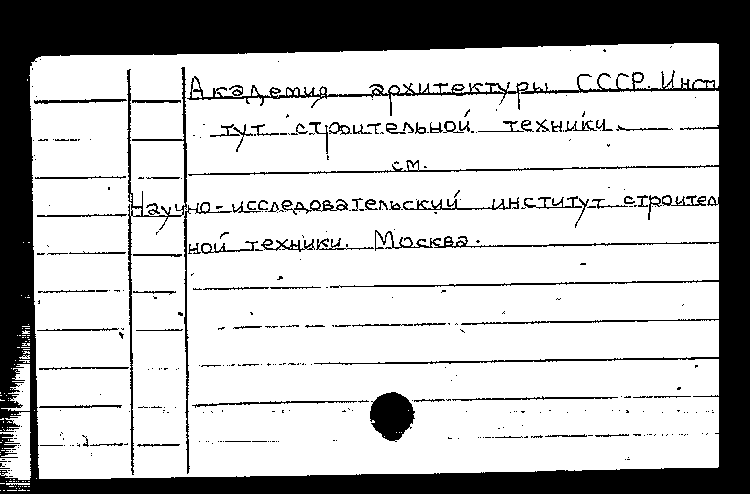 Академия архитектуры СССР. Инст
тут строительной техники.
см.
Научно-исследовательский институт строител
ной техники. Москва.